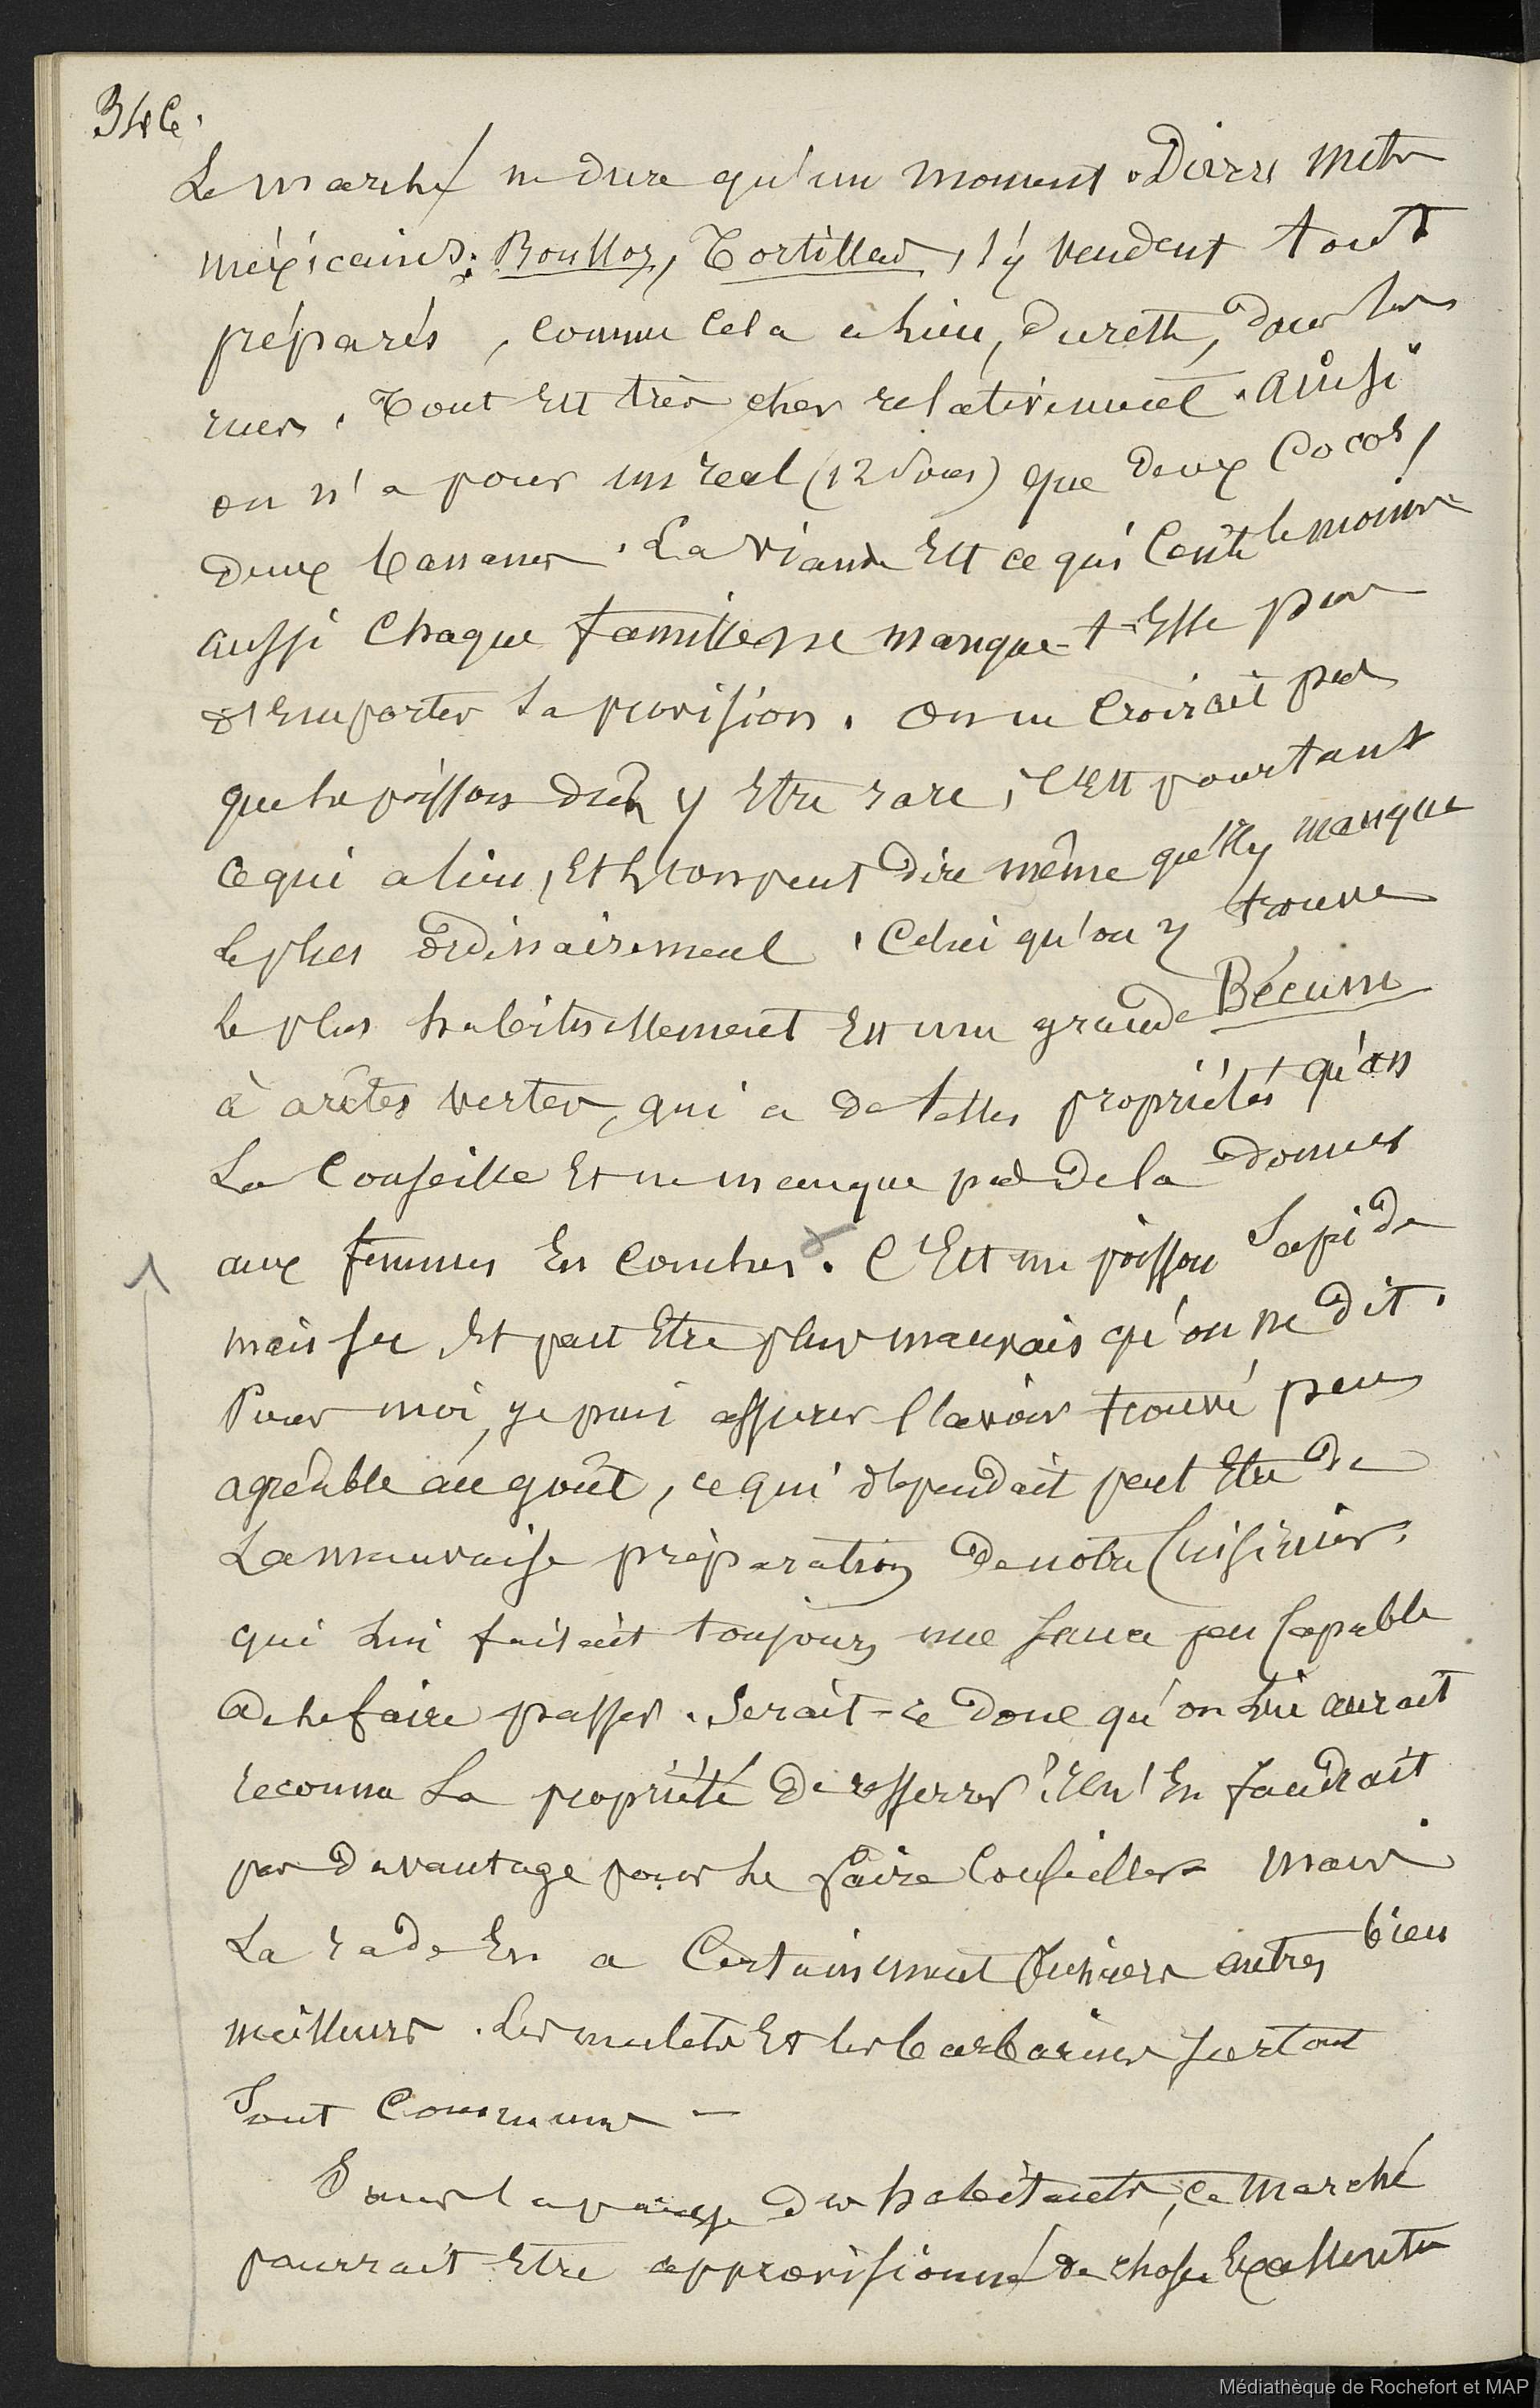 346.
Le marché ne dure qu'un moment. Divers mets
méxicains: Boullos, Tortillas, s'y vendent tout
préparés, comme cela a lieu, du reste, dans les
rues. Tout est très cher relativement. Ainsi
on n'a pour un real (12 sous) que deux Cocos,
deux bananes. La viande est ce qui coûte le moins
aussi chaque famille ne manque-t-elle pas
d'emporter sa provision. On ne croirait pas
que le poisson dût y être rare, c'est pourtant
ce qui a lieu, et l'on peut dire même qu'il y manque
le plus ordinairement. Celui qu'on y trouve
le plus habituellement est une grande Bécune
à arêtes vertes, qui a de telles propriétés qu'on
la conseille et ne manque pas de la donner
aux femmes en couches. C'est un poisson sapide
mais sec et peut être plus mauvais qu'on ne dit.
Pour moi, je puis assurer l'avoir trouvé peu
agréable au goût, ce qui dépendait peut être de
la mauvaise préparation de notre Cuisinier,
qui lui faisait toujours une sauce peu capable
de le faire passer. Serait-ce donc qu'on lui aurait
reconnu la propriété de resserrer? Il n'en faudrait
pas davantage pour le faire conseiller mais
la rade en a certainement autres bien
meilleurs. Les mulets et les barbarins surtout
sont communs —
Sans la des habitants, ce marché
pourrait être approvisionné de choses Excellentes
Médiathèque de Rochefort et MAP